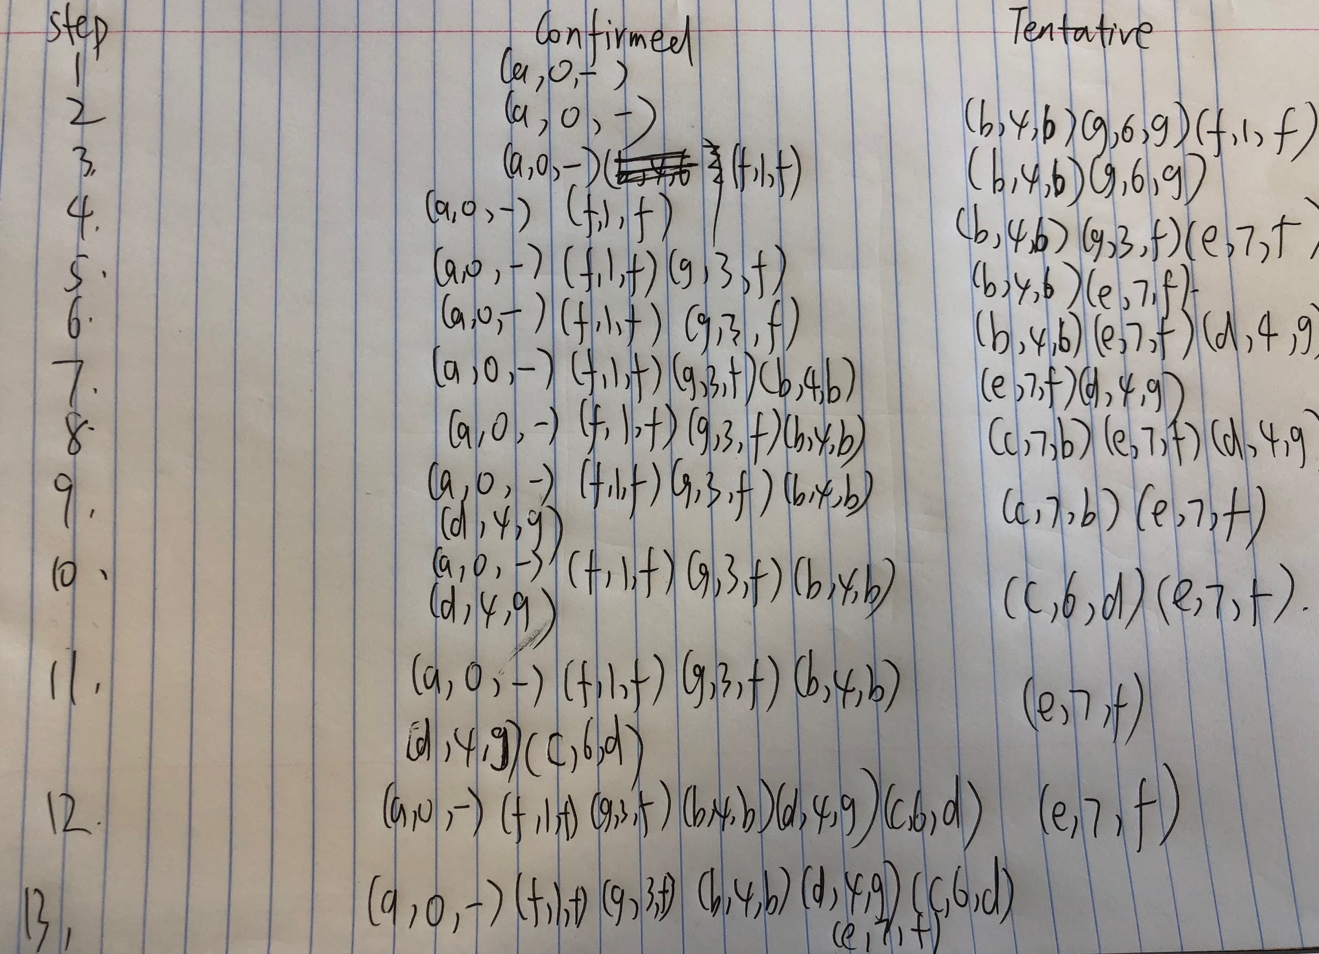 Step Confirmed Tentative
1 (a,0,-)
2 (a,0,-) (b,4,b)(g,6,g)(f,1,f)
3. (a,0,-)(f,1,f) (b,4,b)(g,6,g)
4. (a,0,-) (f,1,f) (b,4,b)(g,3,f)(e,7,f)
5. (a,0,-)(f,1,f)(g,3,f) (b,4,b)(e,7,f)
6. (a,0,-)(f,1,f) (g,3,f) (b,4,b)(e,7,f)(d,4,g)
7. (a,0,-) (f,1,f)(g,3,f)(b,4,b) (e,7,f)(d,4,g)
8. (a,0,-) (f,1,f)(g,3,f)(b,4,b) (c,7,b)(e,7,f)(d,4,g
9. (a,0,-) (f,1,f)(g,3,f)(b,4,b) (c,7,b)(e,7,f)
(d,4,g)
10. (a,0,-) (f,1,f)(g,3,f)(b,4,b) (c,6,d)(e,7,f).
(d,4,g)
11. (a,0,-)(f,1,f)(g,3,f)(b,4,b) (e,7,f)
(d,4,g)(c,6,d)
12. (a,0,-)(f,1,f)(g,3,f)(b,4,b)(d,4,g)(c,6,d) (e,7,f)
13, (a,0,-)(f,1,f)(g,3,f) (b,4,b)(d,4,g)(c,6,d)
(e,7,f)